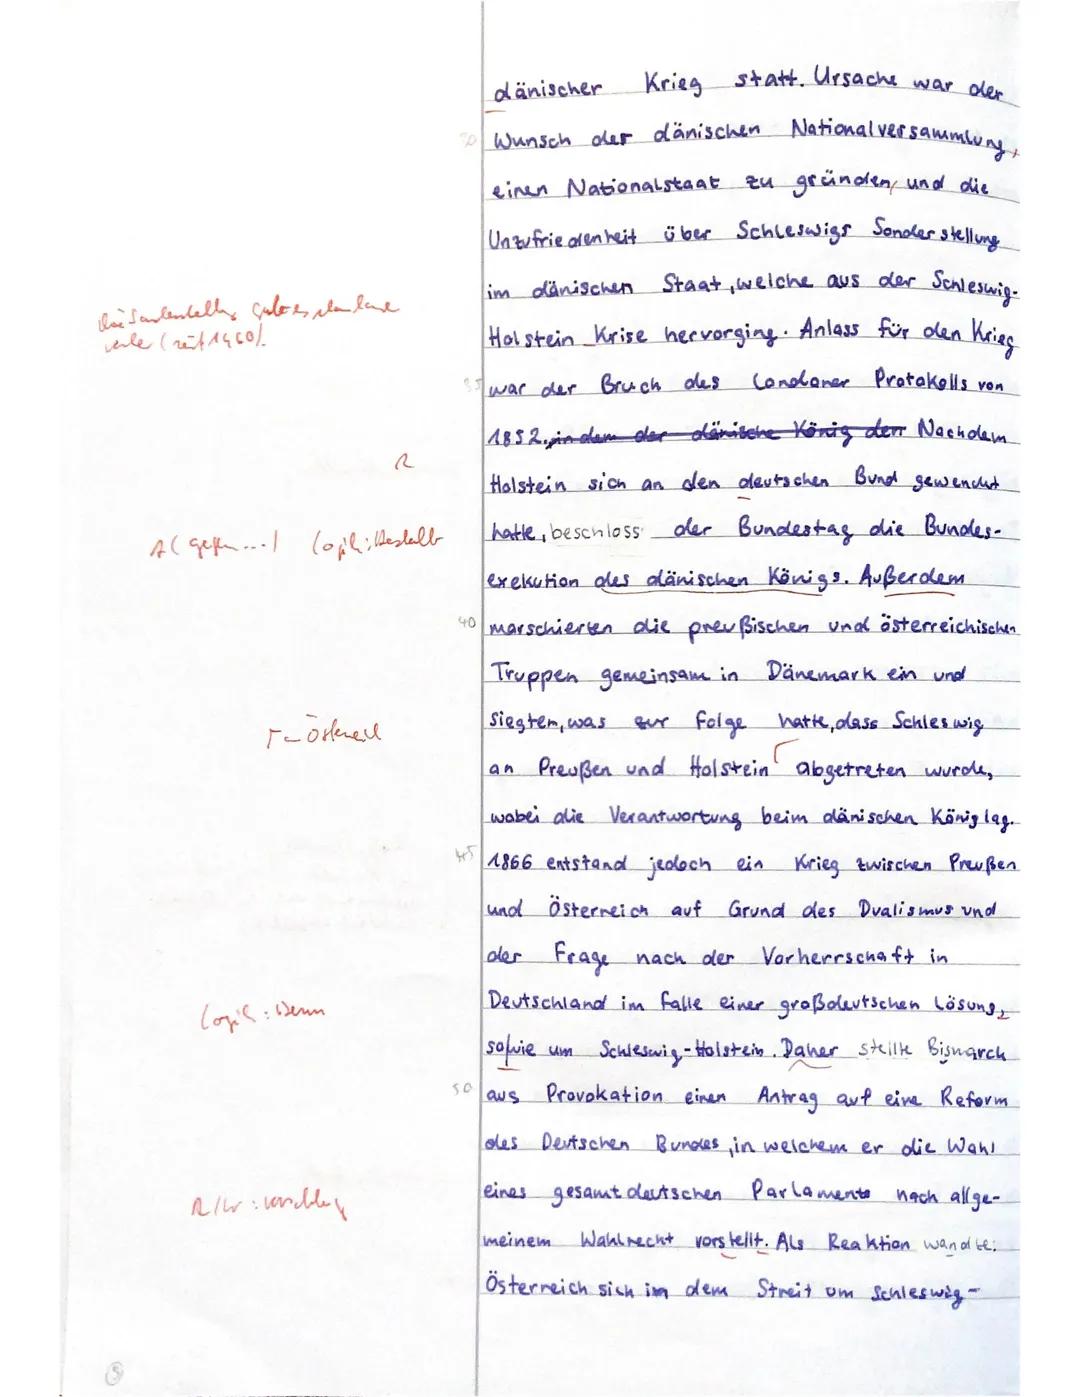 dänischer Krieg statt. Ursache war der
30 Wunsch der dänischen Nationalversammlung,
einen Nationalstaat zu gründen, und die
Unzufriedenheit über Schleswigs Sonderstellung
im dänischen Staat, welche aus der Schleswig-
Holstein Krise hervorging. Anlass für den Krieg
35 war der Bruch des Londoner Protokolls von
1852. indem der dänische König den Nachdem
R
Holstein sich an den deutschen Bund gewendet
hatte, beschloss der Bundestag die Bundes-
A (gegen ...) Logik: Deshalb
exekution des dänischen Königs. Außerdem
40 marschierten die preußischen und österreichischen
Truppen gemeinsam in Dänemark ein und
siegten, was zur Folge hatte, dass Schleswig
an Preußen und Holstein abgetreten wurde,
wobei die Verantwortung beim dänischen König lag.
45 1866 entstand jedoch ein Krieg zwischen Preußen
und Österreich auf Grund des Dualismus und
der Frage nach der Vorherrschaft in
Deutschland im Falle einer großdeutschen Lösung,
Logik: Denn
sowie um Schleswig-Holstein. Daher stellte Bismarck
50 aus Provokation einen Antrag auf eine Reform
des Deutschen Bundes, in welchem er die Wahl
eines gesamtdeutschen Parlaments nach allge-
meinem Wahlrecht vorstellt. Als Reaktion wandte
Österreich sich in dem Streit um Schleswig-
5